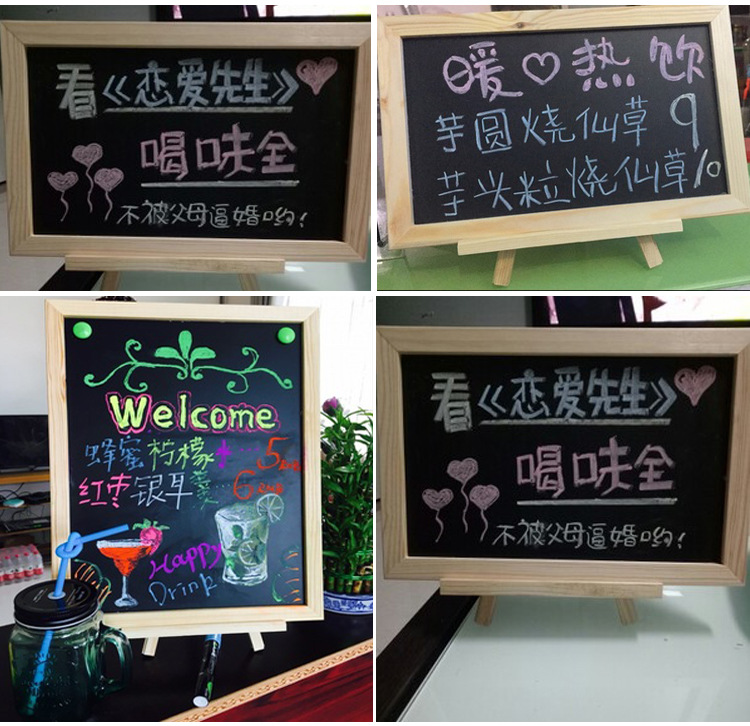 看《恋爱先生》
喝味全
不被父母逼婚哟!
暖热饮
芋圆烧仙草 9
芋头粒烧仙草 10
Welcome
蜂蜜柠檬 ···· 5RMB
红枣银耳羹 ··· 6RMB
Happy
Drink
看《恋爱先生》
喝味全
不被父母逼婚哟!